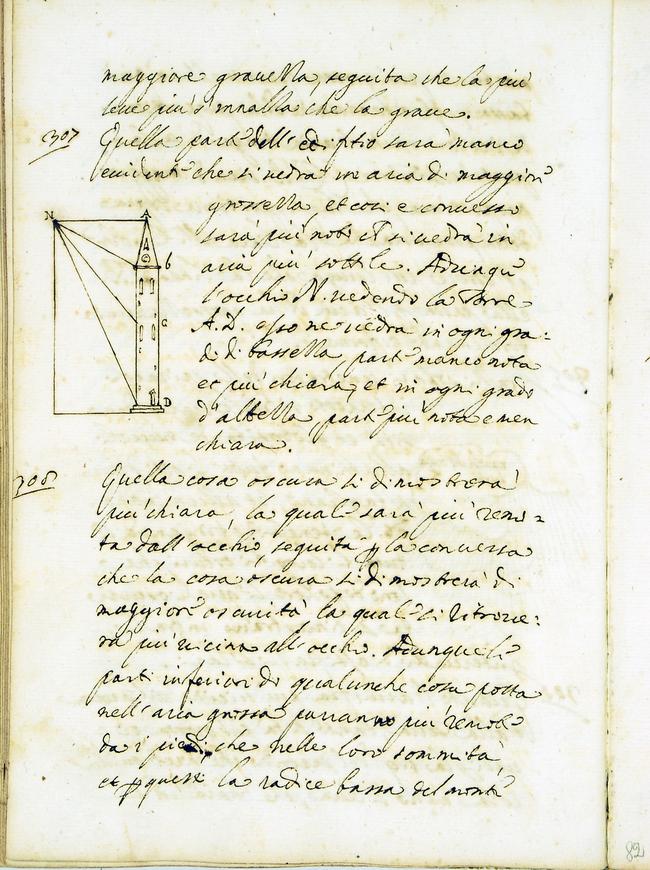 maggiore grauezza, seguita che la più
leue più s'innalza che la graue.
307
Quella parte dell'edifitio sarà manco
euidente che si uedrà in aria di maggior
grossezza, et cosi e conuerso
sarà più nota che si uedrà in
aria più sottile. Adunque
l'occhio N. uedendo la Torre
A.D. esso ne uedrà in ogni gra=
do di bassezza, parte manco nota
et più chiara, et in ogni grado
d'altezza, parte più nota e men
chiara.
N
A
b
C
D
308
Quella cosa oscura si dimostrerà
più chiara, la quale sarà più remo=
ta dall'occhio, seguita p la conuersa
che la cosa oscura si dimostrerà di
maggiore oscurità la quale si ritroue=
rà più uicina all'occhio. Adunque le
parti inferiori di qualunche cosa posta
nell'aria grossa parranno più remote
da i piedi, che nelle loro sommità,
et p questo la radice bassa del monte
82